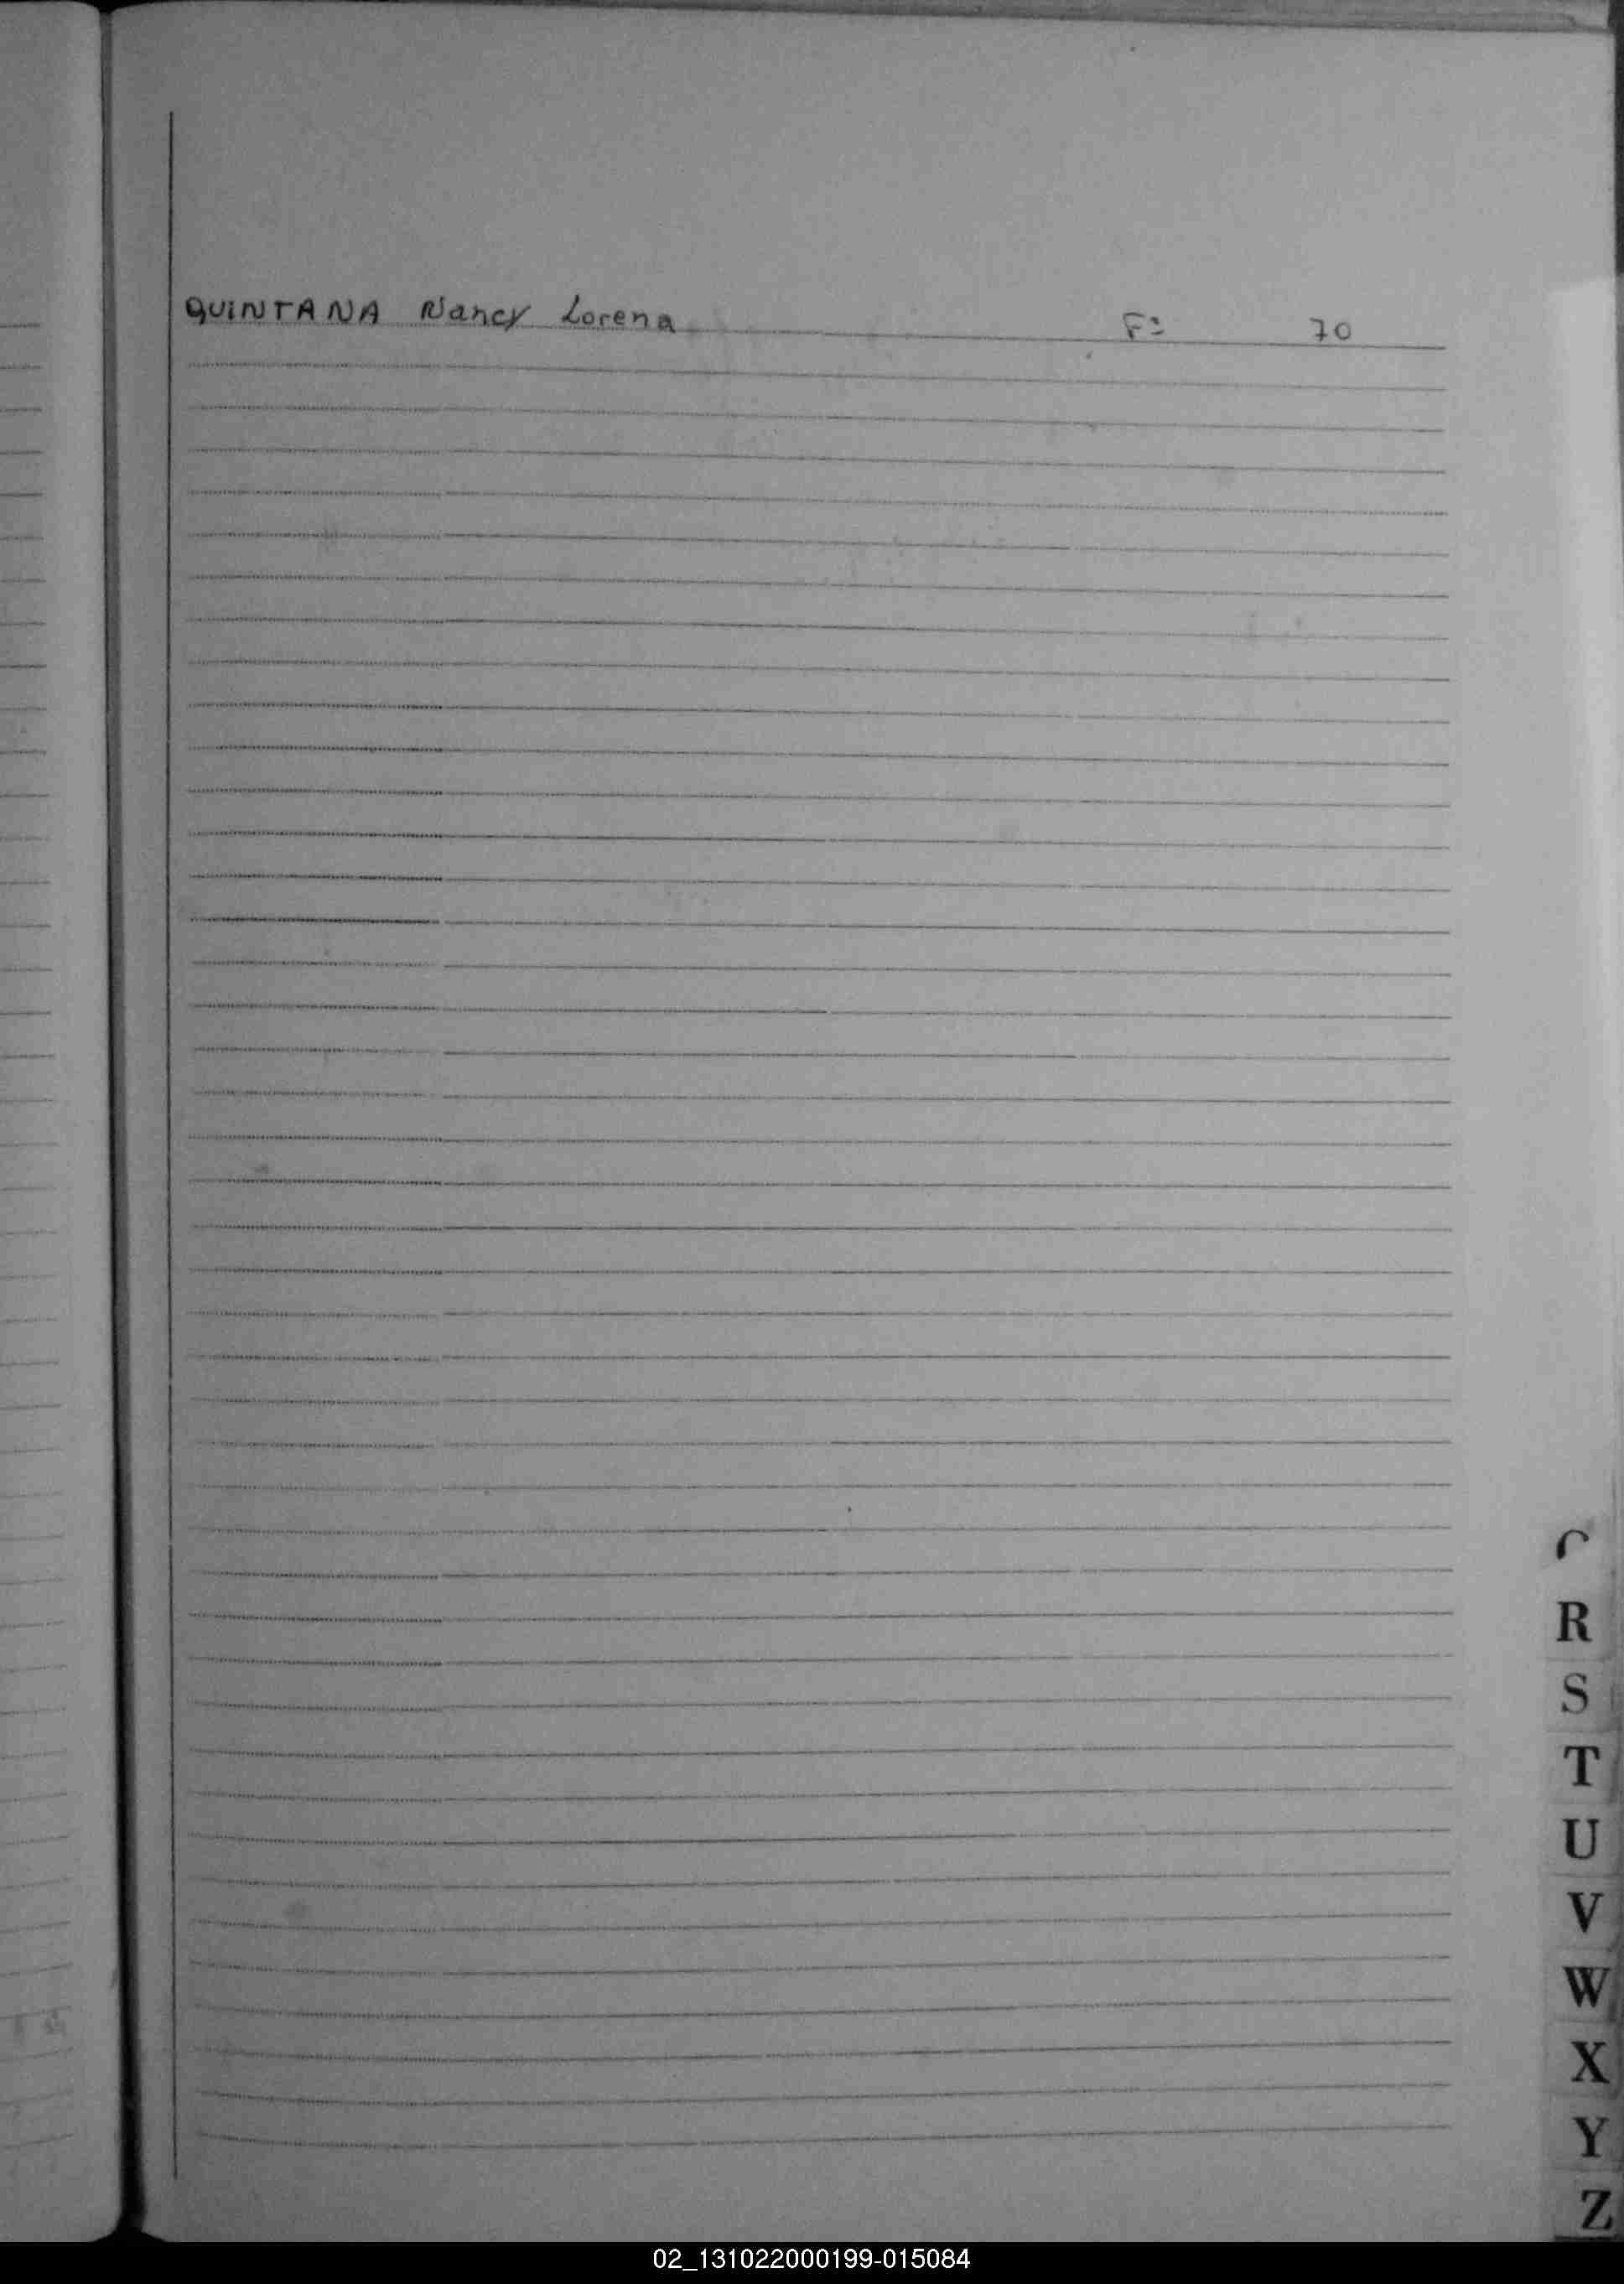 QUINTANA Nancy Lorena F= 70
R
S
T
U
V
W
X
Y
Z
02_131022000199-015084